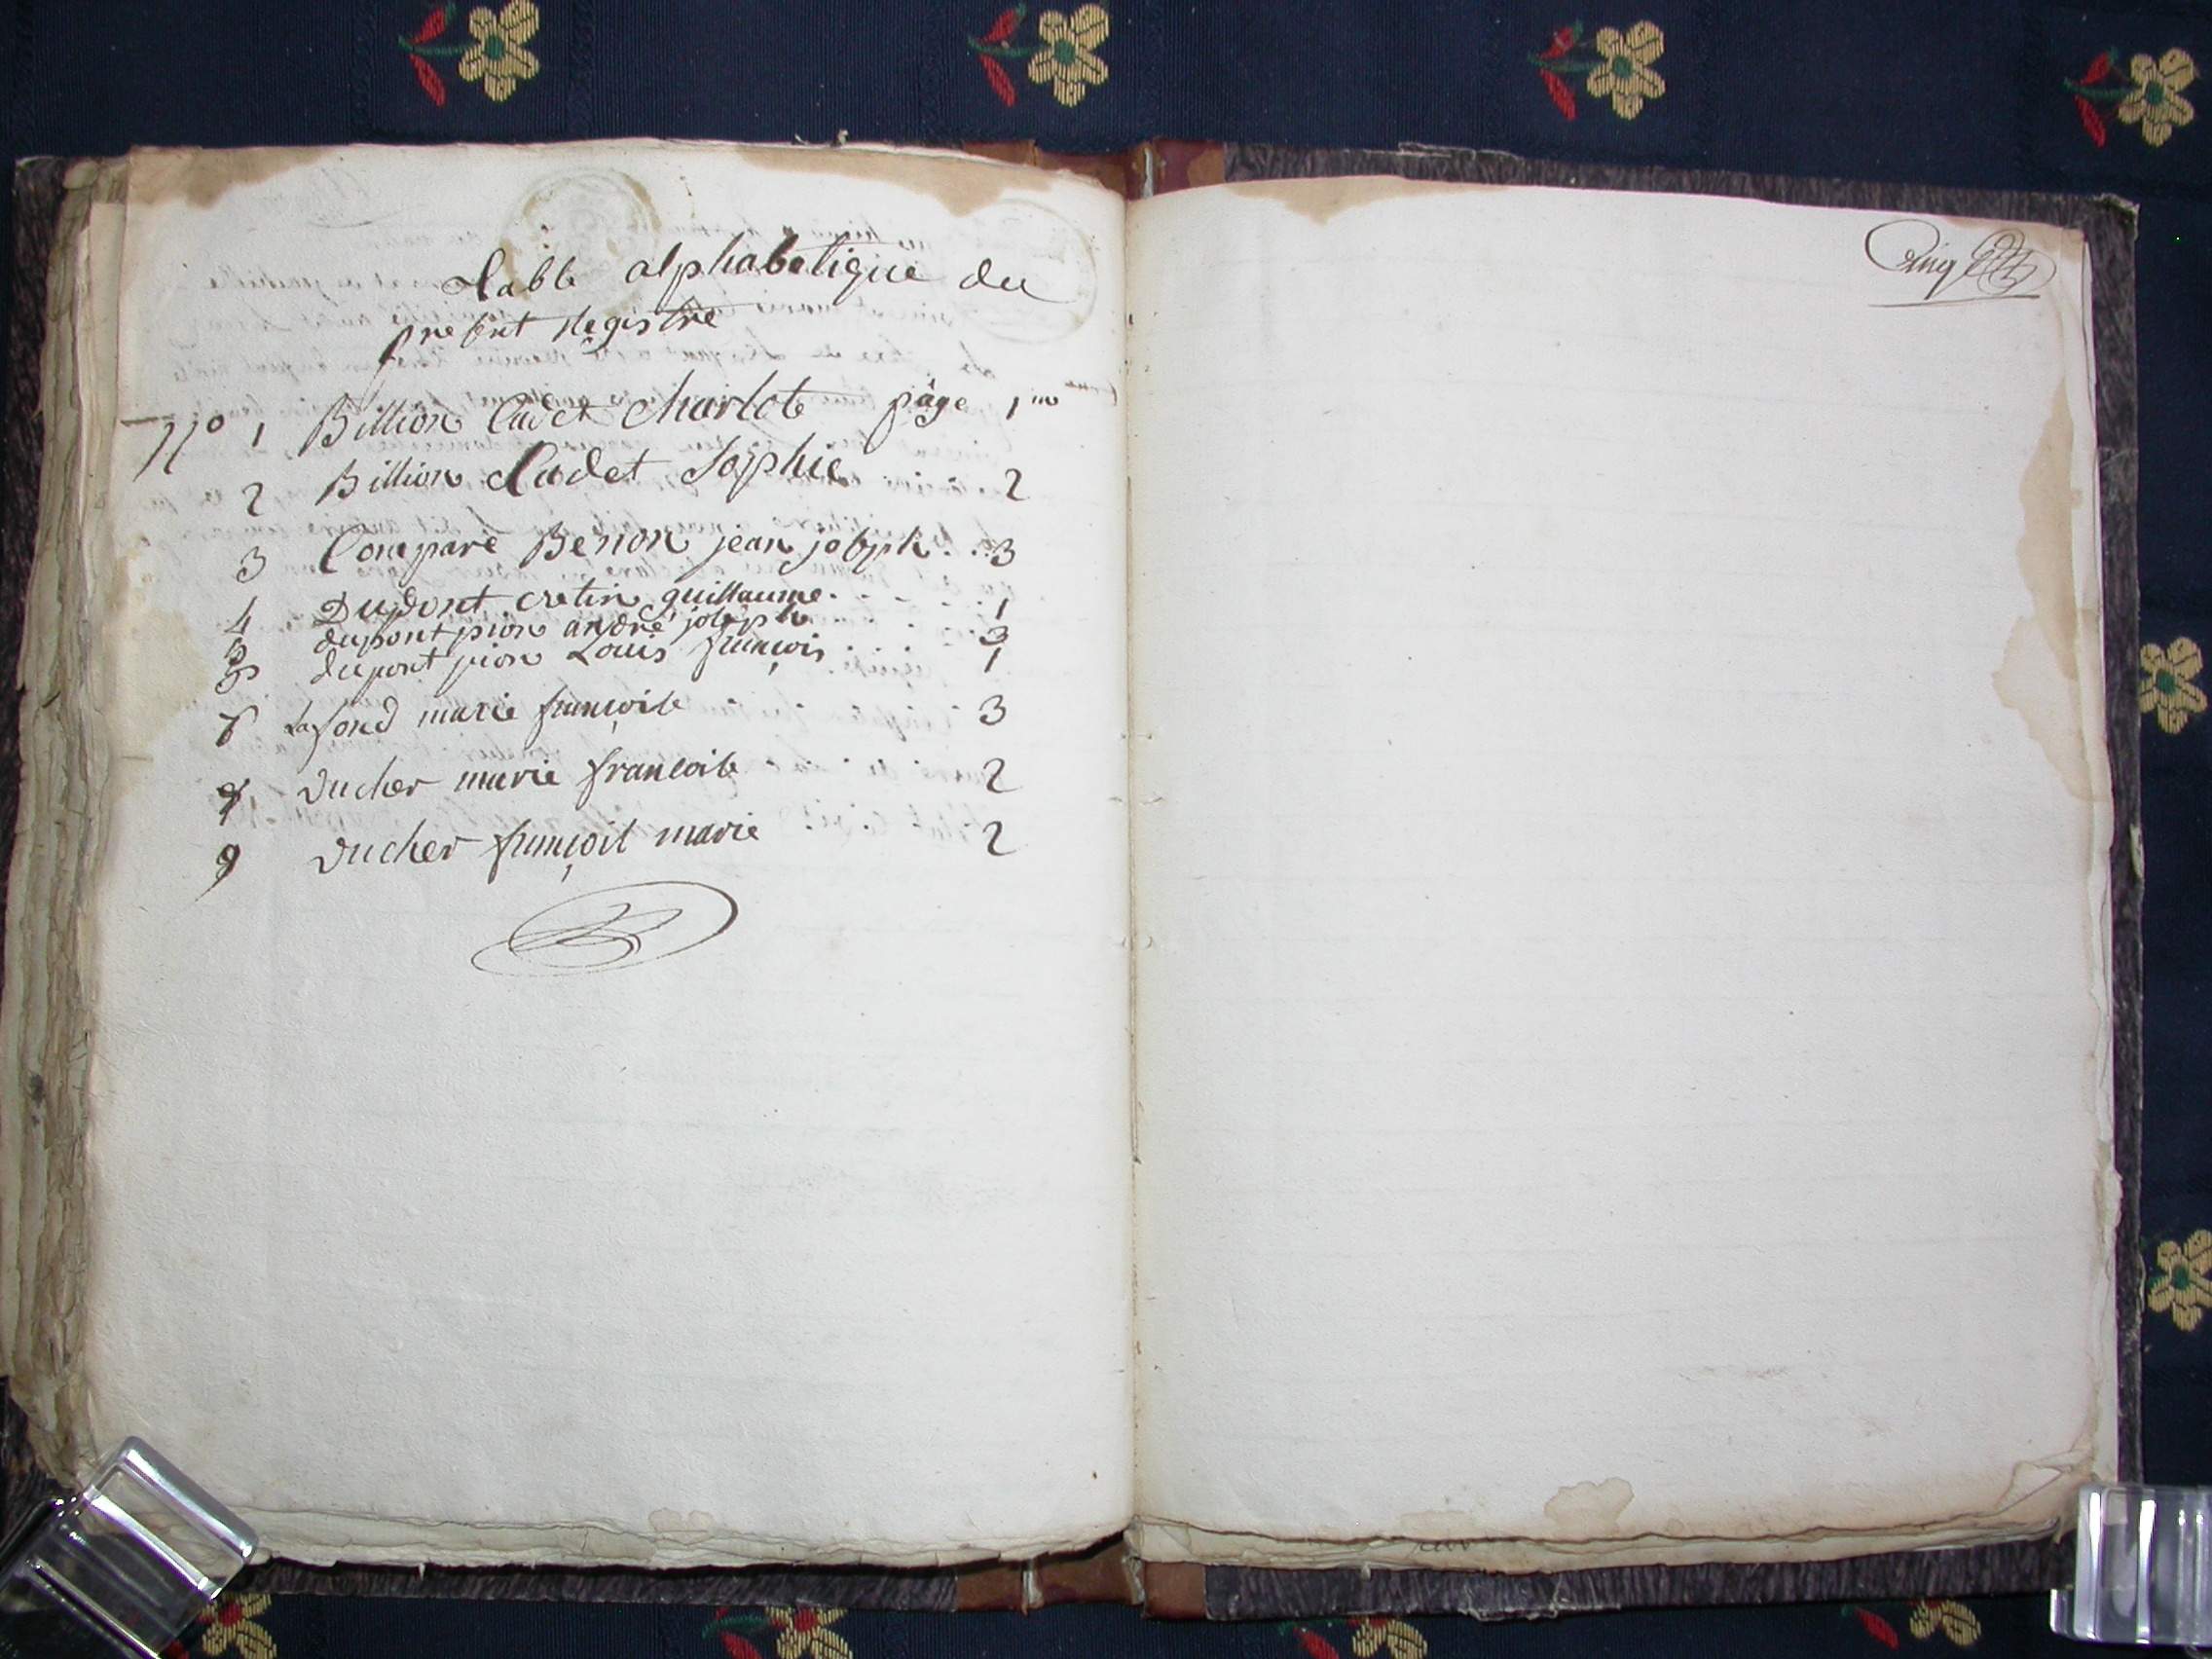 Table alphabetique du
present Registre
N° 1 Billion Cadet Charlote page 1
2 Billion Cadet Sophie 2
3 Comparé Benon jean joseph . . 3
4 Dupont cretin guillaume . . . . 1
dupont pion andré joseph . . 3
dupont pion Louis françois . . . 1
Lafond marie françoise 3
Ducher marie francoise 2
9 Ducher françois marie 2
Cinq